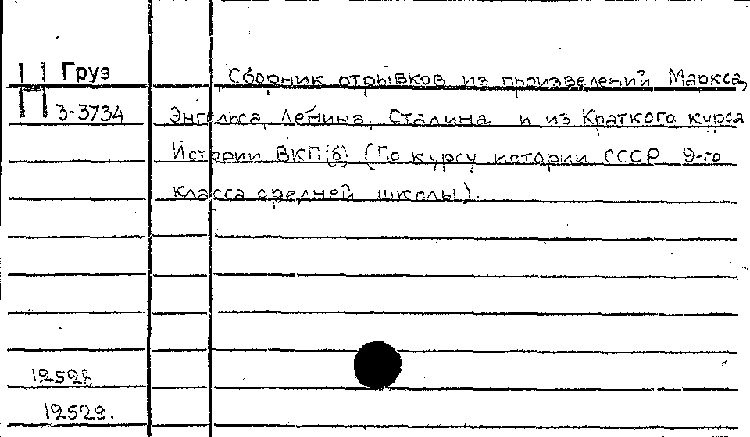 Н Груз
3-3734
Сборник отрывков из произведений Маркса,
Энгельса, Ленина, Сталина и из Краткого курса
Истории ВКП(б) (По курсу истории СССР 9-го
класса средней школы).
12528
12529.